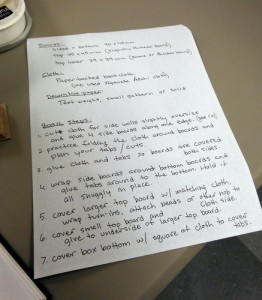 Boards:
Sides + bottom
top
top liner 39 x 39 mm
Cloth:
Paper-backed book cloth
(we used Japanese Asahi cloth)
Decorative paper:
Text weight, small pattern or solid
Basic Steps:
1. cut cloth for side walls slightly oversize
and glue 4 side boards along one edge.
2. practice folding the cloth around boards and
plan your tabs / cuts.
3. glue cloth and tabs so boards are covered
both sides.
4. wrap side boards around bottom boards and
glue tabs around to the bottom. Hold it
all snuggly in place.
5. cover larger top board w/ matching cloth,
wrap turn-ins, attach beads or other knob to
cloth side.
6. cover small top board and
glue to underside of larger top board.
7. cover box bottom w/ square of cloth to cover
tabs.